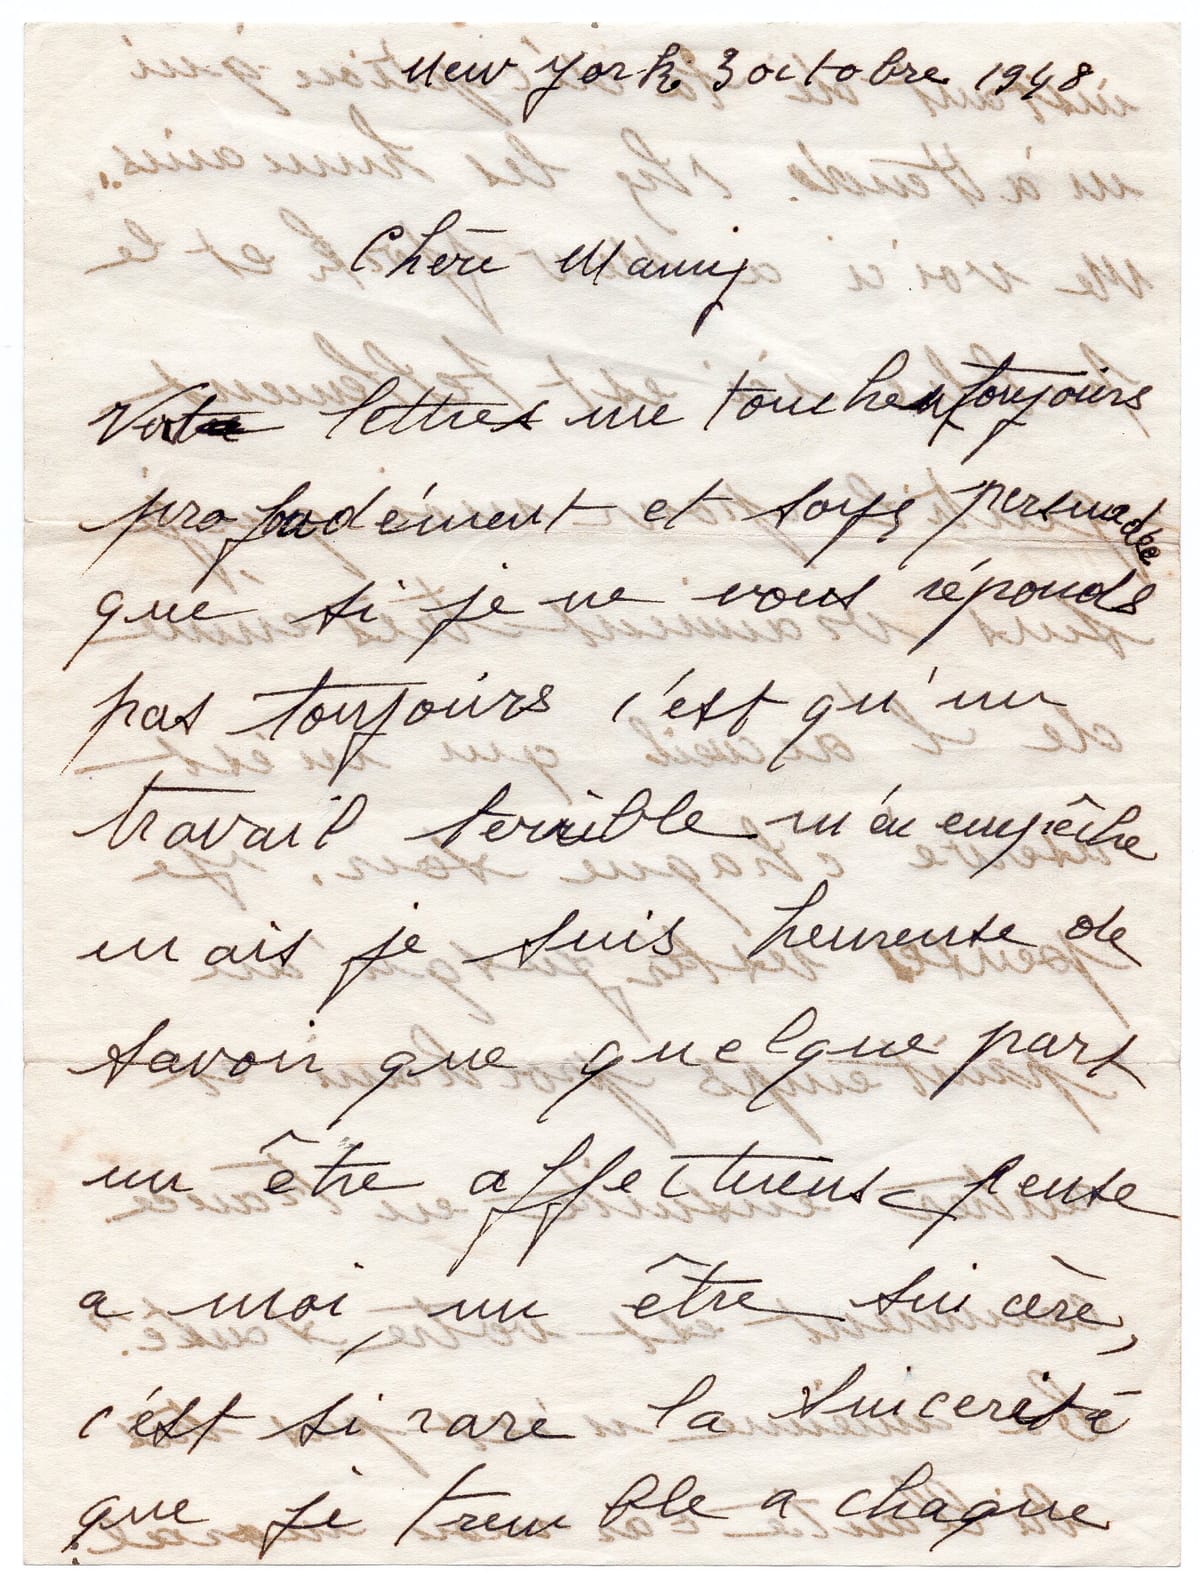 New York, 3 octobre 1948
Chère Mamy
Vos lettres me touchent toujours
profondément et soyez persuadée
que si je ne vous réponds
pas toujours c'est qu'un
travail terrible m'en empêche
mais je suis heureuse de
savoir que quelque part
un être affectueux pense
a moi, un être sincère,
c'est si rare la sincerité
que je tremble a chaque